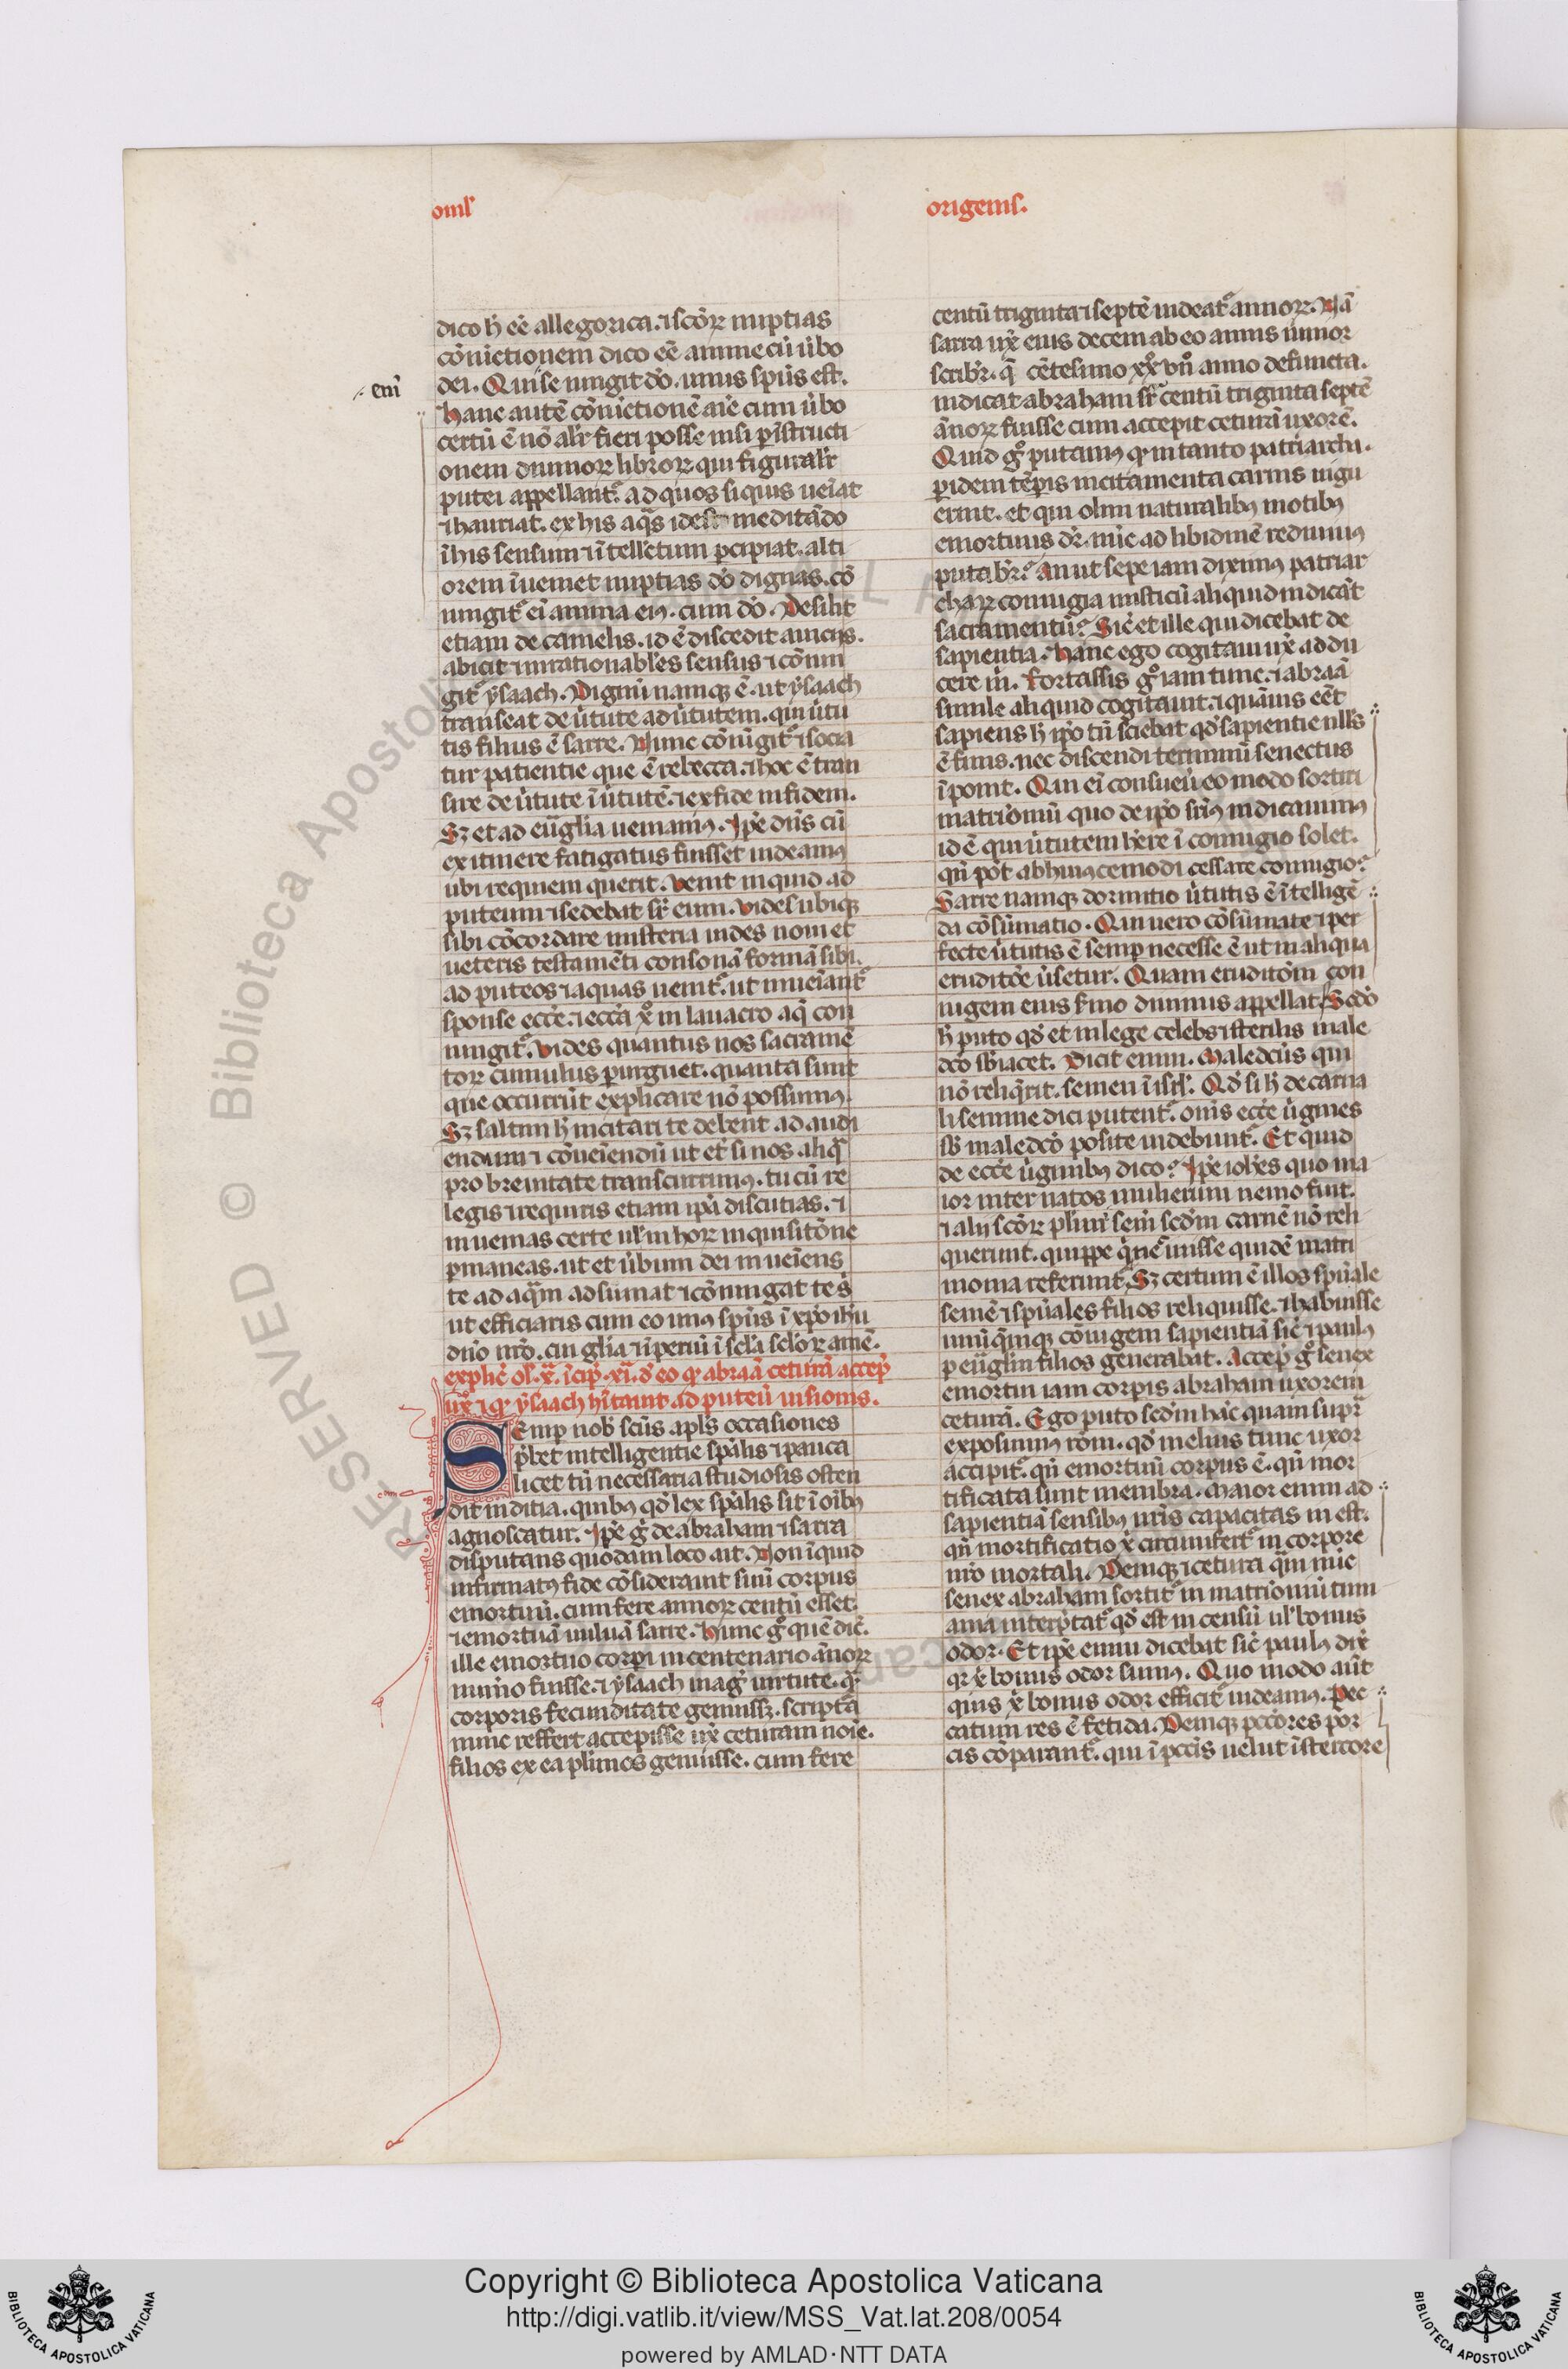 oml'
origenis.
enī
dico h̄ eē allegorica. ⁊ scōꝝ nuptias
cōniūctionem dico eē anime cū ūbo
dei. Qui se iungit dō. unus sp̄us est.
hanc autē cōniūctionē aīe cum ūbo
certū ē nō alr̄ fieri posse nisi ꝑ īstructi
onem diuinoꝝ libroꝝ qui figuralr̄
putei appellant᷑. ad quos siquis ueīat
⁊ hauriat. ex his aq̄s idest meditādo
ī his sensum ⁊ ītell'ctum ꝑcipiat. alti
orem īueniet nuptias dō dignas. cō
iungit᷑ eī anima eiꝰ. cum dō. Desilit
etiam de camelis. id ē discedit a uiciis.
abicit irrationabl'es sensus ⁊ cōiun
git᷑ ẏsaach. Dignū namqꝫ ē. ut ẏsaach
transeat de ūtute ad ūtutem. qui ūtu
tis filius ē sarre. Nunc cōiūgit᷑ ⁊ socia
tur patientie que ē rebecca. ⁊ hoc ē tran
sire de ūtute ī ūtutē. ⁊ ex fide in fidem.
Sꝫ et ad eūglia ueniamꝰ. Ip̄e dn̄s cū
ex itinere fatigatus fuisset uideamꝰ
ubi requiem querit. Venit inquid ad
puteum ⁊ sedebat sr̄ eum. Vides ubiqꝫ
sibi cōcordare misteria uides noui et
ueteris testamēti consonā formā sibi.
ad puteos ⁊ aquas uenit᷑. ut inueīant᷑
sponse ecc̄e. ⁊ ecc̄a xo in lauacro aq̄ con
iungit᷑. Vides quantus nos sacramē
toꝝ cumulus ꝑurguet. quanta sunt
que occurrūt explicare nō possumꝰ.
Sꝫ saltim h̄ incitari te debent ad audi
endum ⁊ cōueīendū ut et si nos aliq̄
pro breuitate transcurrimꝰ. tu cū re
legis ⁊ requiris etiam ip̄a discutias. ⁊
inuenias certe ul' in hoꝝ inquisitōne
ꝑmaneas. ut et ūbum dei inueīens
te ad aq̄m adsumat ⁊ cōiungat te s̄
ut efficiaris cum eo unꝰ sp̄us ī xp̄o ih̄u
dn̄o nr̄o. cui gl'ia ⁊ īperiū ī scl'a scl'oꝝ amē.
explic̄ ol'. x͞. īcip̄. xi. d̄ eo qꝛ abraā ceturā accep̄
ux̄ ⁊ qꝛ ẏsaach h̄itauit ad puteū uisionis.
Semp nob̄ scūs apl's occasiones
p̄bet intelligentie spālis ⁊ pauca
licet tn̄ necessaria studiosis osten
dit inditia. quibꝰ qd̄ lex spālis sit ī oībꝰ
agnoscatur. Ip̄e g̊ de abraham ⁊ sarra
disputans quodam loco ait. Non īquid
infirmatꝰ fide cōsiderauit suū corpus
emortuū. cum fere annoꝝ centū esset.
⁊ emortuā uuluā sarre. Hunc g̊ quē dic̄.
ille emortuo corꝑi in centenario ānoꝝ
num̄o fuisse. ⁊ ẏsaach mag̊ uirtute. q̄
corporis fecunditate genuissꝫ. scripta
nunc reffert accepisse ux̄ ceturam noīe.
filios ex ea plīmos genuisse. cum fere
centū triginta ⁊ septē uideat᷑ annoꝝ. Nā
sarra ux̄ eius decem ab eo annis iunior
scribr̄. q̄ cētesimo xxo vn̄o anno defuncta.
indicat abraham sr̄ centū triginta septē
ānoꝝ fuisse cum accepit ceturā uxorē.
Quid g̊ putamꝰ qꝛ in tanto patriarcha.
ꝑ idem tēpis incitamenta carnis uigu
erint. et qui olim naturalibꝰ motibꝰ
emortuus dr̄. nūc ad libidinē rediuiuꝰ
putabr̄? an ut sepe iam diximꝰ patriar
chaꝝ coniugia misticū aliquid indicāt
sacramentū? Sic̄ et ille qui dicebat de
sapientia. hanc ego cogitaui ux̄ addu
cere m̄. Fortassis g̊ iam tunc. ⁊ abraā
simile aliquid cogitauit. ⁊ quāuis eēt
sapiens h̄ ip̄o tn̄ sciebat qd̄ sapientie null's
ē finis. nec discendi terminū senectus
īponit. Qn̄ eī consueū eo modo sortiri
matrimoniū quo de ip̄o sr̄ius indicauimꝰ
id ē qui ūtutem h̄ere ī coniugio solet.
qn̄ pōt ab hiꝰcemodi cessare coniugio?
Sarre namqꝫ dormitio ūtutis ē ītelligē
da cōsūmatio. Qn̄ uero cōsūmate ⁊ per
fecte ūtutis ē semꝑ necesse ē ut in aliqua
eruditōe ūsetur. Quam eruditōm con
iugem eius s̄mo diuinus appellat. Sedō
h̄ puto qd̄ et in lege celebs ⁊ sterilis male
dc̄o sb̄iacet. Dicit enim. Maledc̄us qui
nō reliq̄rit. semen ī isrl'. Qd̄ si h̄ de carna
li semine dici putent᷑. om̄s ecc̄e ūgines
sb̄ maledc̄o posite uidebunt᷑. Et quid
de ecc̄e ūginibꝰ dico? Ip̄e ioh̄es quo ma
ior inter natos mulierum nemo fuit.
⁊ alii scōꝝ plūr̄ sem̄ sed̄m carnē nō reli
querunt. quippe q̄ nē iuisse quidē matri
monia referunt᷑. Sꝫ certum ē illos sp̄uale
semē ⁊ sp̄uales filios reliquisse. ⁊ habuisse
unū q̄mqꝫ cōiugem sapientiā sic̄ ⁊ paulꝰ
ꝑ eūgl'm filios generabat. Accep̄ g̊ senex
emortui iam corꝑis abraham uxorem
ceturā. Ego puto sed̄m hāc quam supr̄
exposuimꝰ rōm. qd̄ melius tunc uxor
accipit᷑. qn̄ emortuū corpus ē. qn̄ mor
tificata sunt membra. Maior enim ad
sapientiā sensibꝰ nr̄is capacitas in est.
qn̄ mortificatio x̄ circumfert᷑ in corpore
nr̄o mortali. Deniqꝫ ⁊ cetura q̄m nūc
senex abraham sortit᷑ in matrimoniū timi
ama interp̄tat᷑ qd̄ est incensū ul' bonus
odor. Et ip̄e enim dicebat sic̄ paulꝰ dix̄
qꝛ x̄ bonus odor sumꝰ. Quo modo aūt
quis x̄ bonus odor efficit᷑ uideamꝰ. Pec
catum res ē fetida. Deniqꝫ pcc̄ores por
cis cōparant᷑. qui ī pcc̄is uelut ī stercore
RESERVED © Biblioteca Apostolica
Copyright © Biblioteca Apostolica Vaticana
http://digi.vatlib.it/view/MSS_Vat.lat.208/0054
powered by AMLAD·NTT DATA
BIBLIOTECA APOSTOLICA VATICANA
BIBLIOTECA APOSTOLICA VATICANA